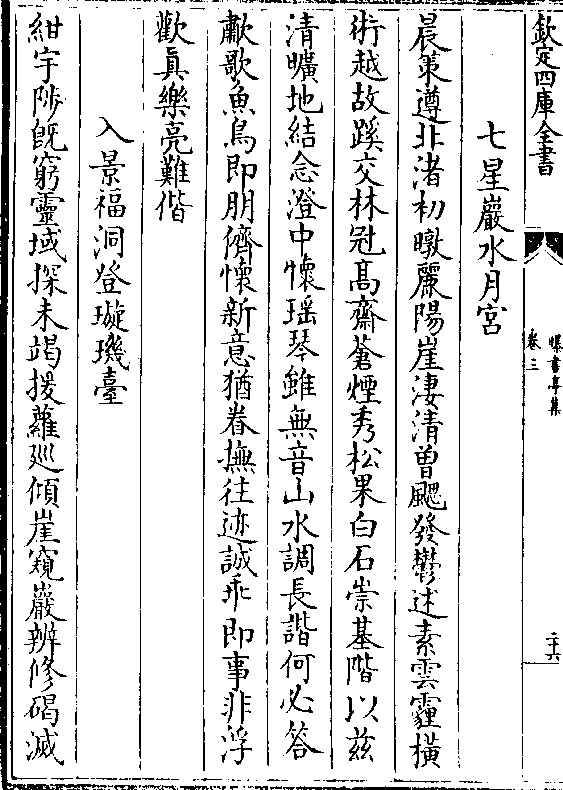 欽定四庫全書
曝書亭集
卷三
二十六
七星巖水月宮
晨策遵北渚初暾麗陽崖淒清曾颸發鬱述素雲霾橫
術越故蹊交林冠髙齋蒼煙秀松果白石崇基階以兹
清曠地結念澄中懷瑶琴雖無音山水調長諧何必答
歗歌魚鳥即朋儕懷新意猶眷撫往迹誠乖即事非浮
歡真樂亮難偕
入景福洞登璇璣臺
紺宇陟既窮靈域探未竭援蘿廵傾崖窺巖辨修碣滅